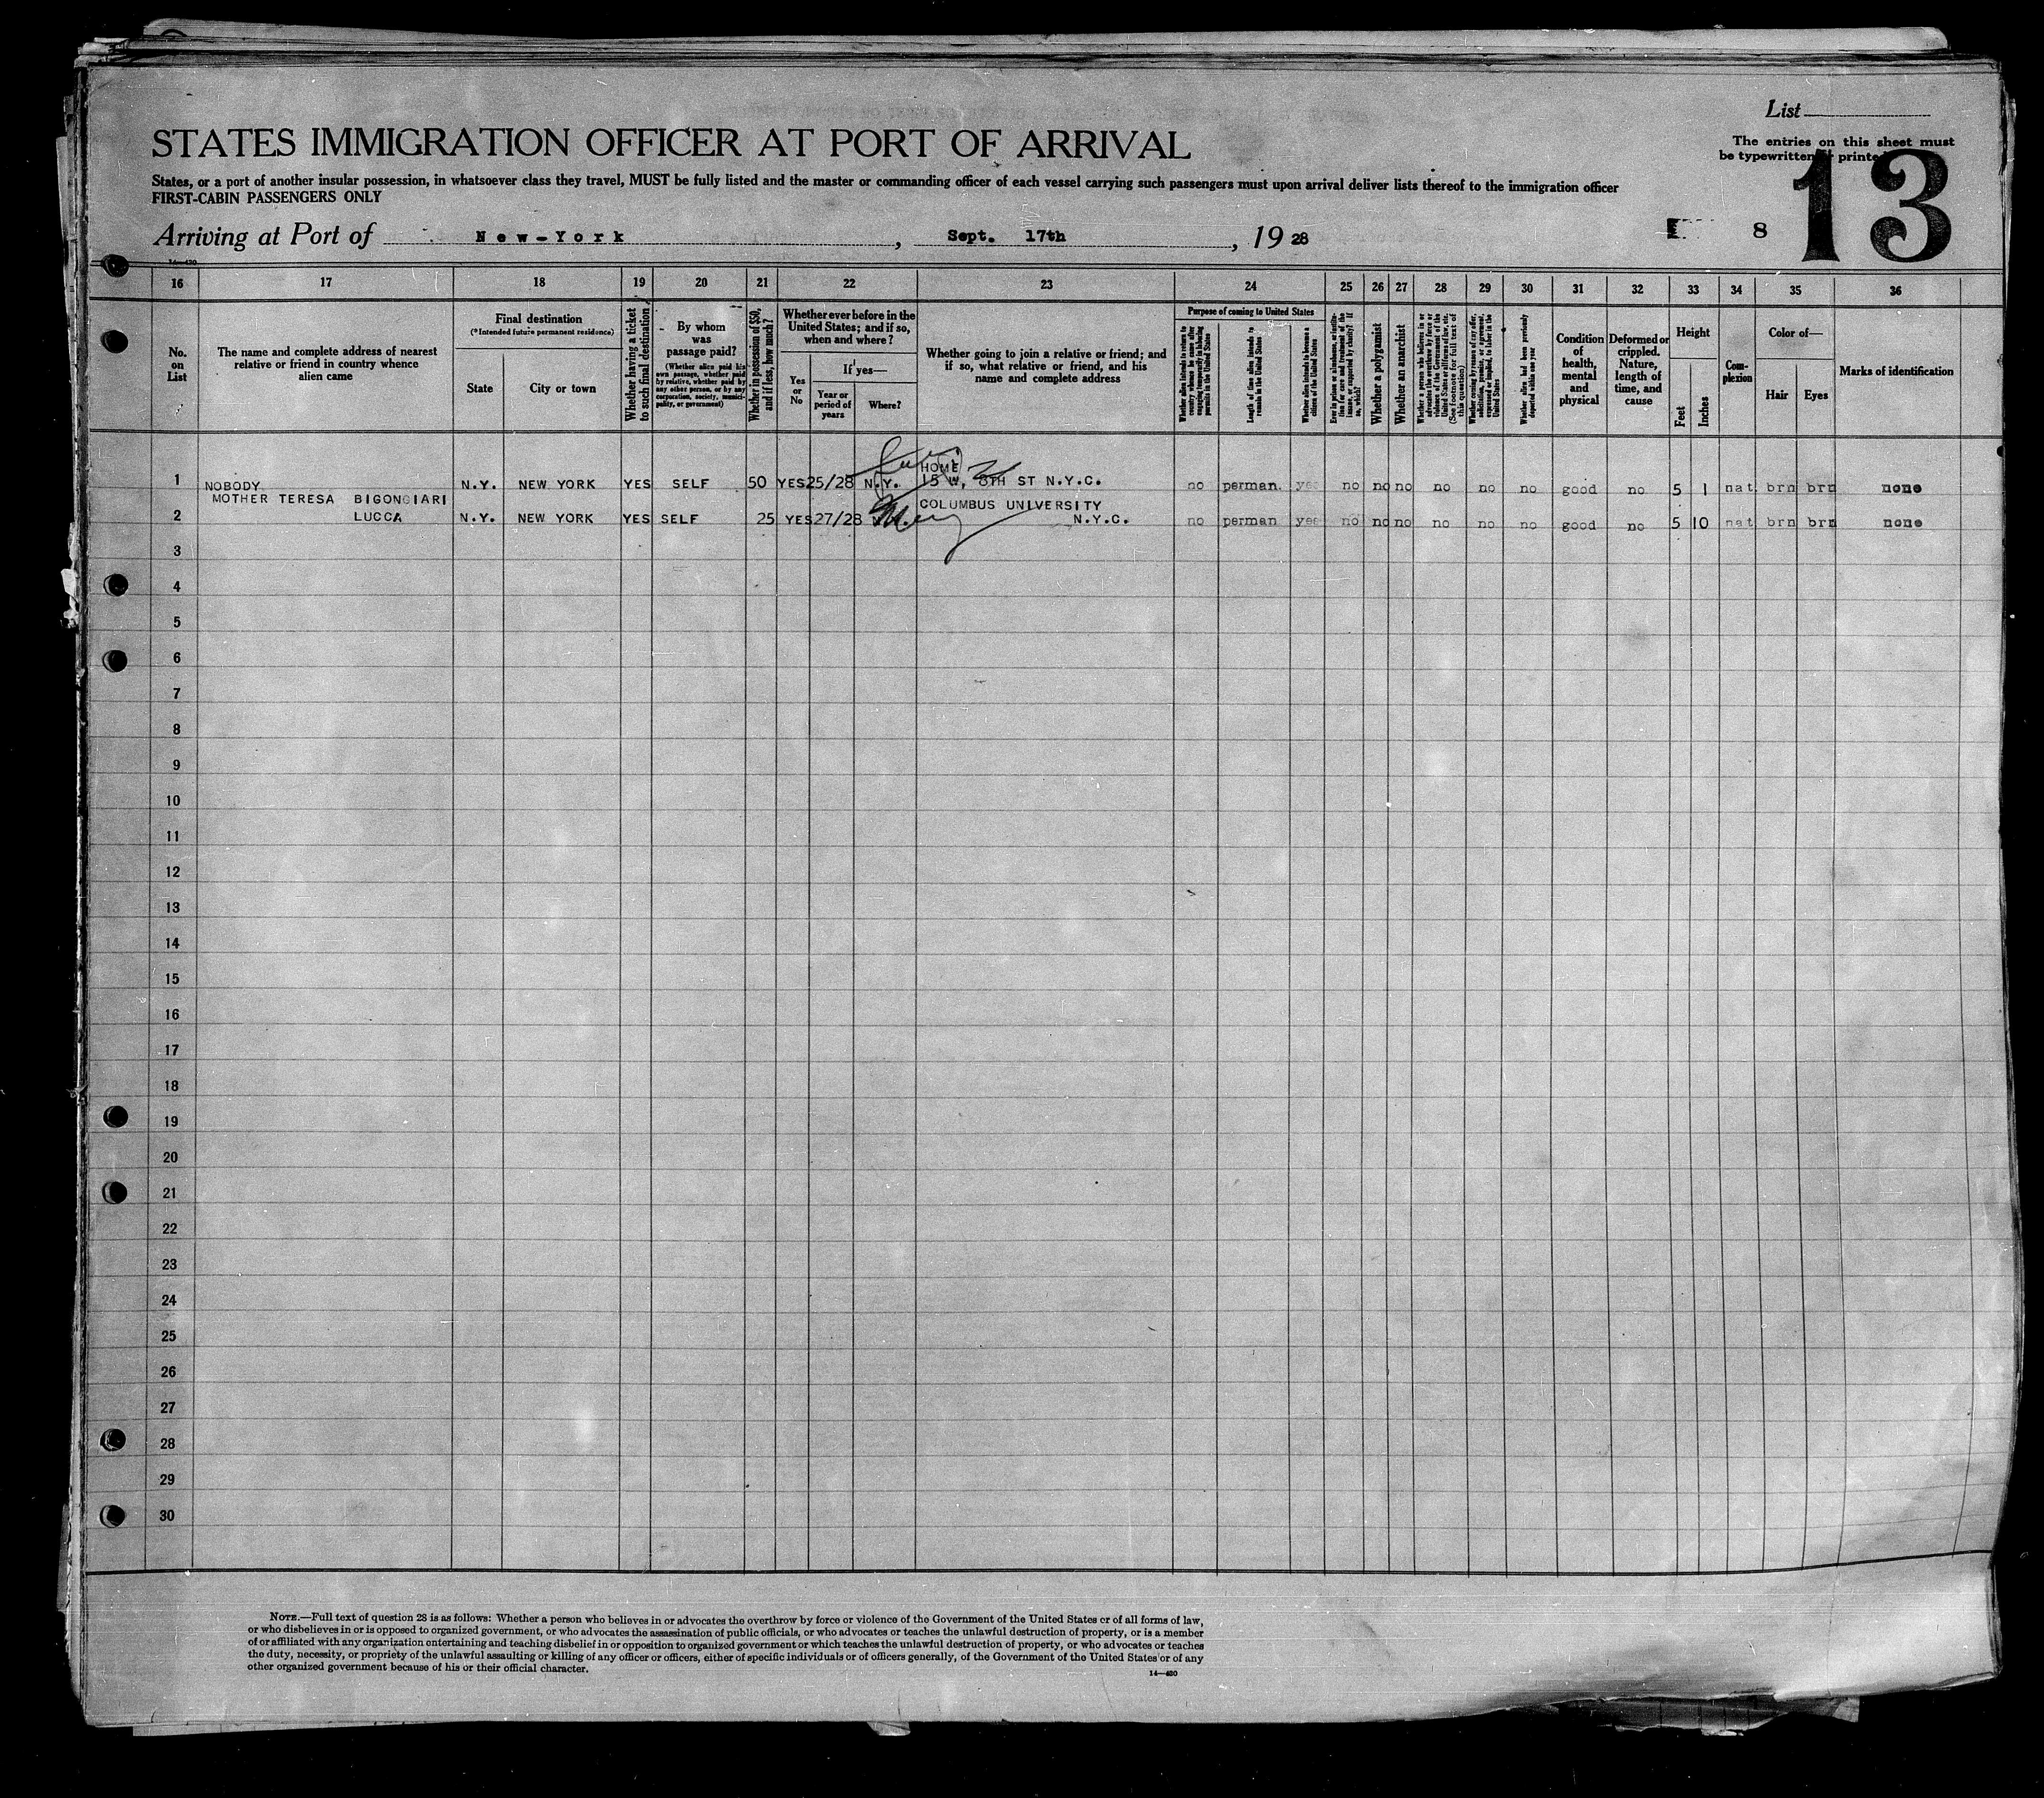 List
STATES IMMIGRATION OFFICER AT PORT OF ARRIVAL
The entries on this sheet must
be typewritten or printed
13
States, or a port of another insular possession, in whatsoever class they travel, MUST be fully listed and the master or commanding officer of each vessel carrying such passengers must upon arrival deliver lists thereof to the immigration officer
FIRST-CABIN PASSENGERS ONLY
Arriving at Port of New-York, Sept. 17th, 1928
8
14—430
16 17 18 19 20 21 22 23 24 25 26 27 28 29 30 31 32 33 34 35 36
No. on List
The name and complete address of nearest relative or friend in country whence alien came
Final destination
(*Intended future permanent residence)
State
City or town
Whether having a ticket to such final destination
By whom was passage paid?
(Whether alien paid his own passage, whether paid by relative, whether paid by any other person, or by any corporation, society, municipality, or government)
Whether in possession of $50, and if less, how much?
Whether ever before in the United States; and if so, when and where?
Yes or No
If yes—
Year or period of years
Where?
Whether going to join a relative or friend; and if so, what relative or friend, and his name and complete address
Purpose of coming to United States
Whether alien intends to return to country whence he came after engaging temporarily in laboring pursuits in the United States
Length of time alien intends to remain in the United States
Whether alien intends to become a citizen of the United States
Ever in prison or almshouse, or institution for care and treatment of the insane, or supported by charity? If so, which?
Whether a polygamist
Whether an anarchist
Whether a person who believes in or advocates the overthrow by force or violence of the Government of the United States or all forms of law, etc. (See footnote for full text of this question)
Whether coming by reason of any offer, solicitation, promise, or agreement, expressed or implied, to labor in the United States
Whether alien had been previously deported within one year
Condition of health, mental and physical
Deformed or crippled. Nature, length of time, and cause
Height
Feet
Inches
Complexion
Color of—
Hair
Eyes
Marks of identification
HOME
1 NOBODY N.Y. NEW YORK YES SELF 50 YES 25/28 N.Y. 15 W, 8TH ST N.Y.C. no perman. yes no no no no no no good no 5 1 nat brn brn none
MOTHER TERESA BIGONCIARI COLUMBUS UNIVERSITY
2 LUCCA N.Y. NEW YORK YES SELF 25 YES 27/28 N.Y.C. no perman yes no no no no no no good no 5 10 nat brn brn none
3
4
5
6
7
8
9
10
11
12
13
14
15
16
17
18
19
20
21
22
23
24
25
26
27
28
29
30
NOTE.—Full text of question 28 is as follows: Whether a person who believes in or advocates the overthrow by force or violence of the Government of the United States or of all forms of law,
or who disbelieves in or is opposed to organized government, or who advocates the assassination of public officials, or who advocates or teaches the unlawful destruction of property, or is a member
of or affiliated with any organization entertaining and teaching disbelief in or opposition to organized government or which teaches the unlawful destruction of property, or who advocates or teaches
the duty, necessity, or propriety of the unlawful assaulting or killing of any officer or officers, either of specific individuals or of officers generally, of the Government of the United States or of any
other organized government because of his or their official character.
14—430